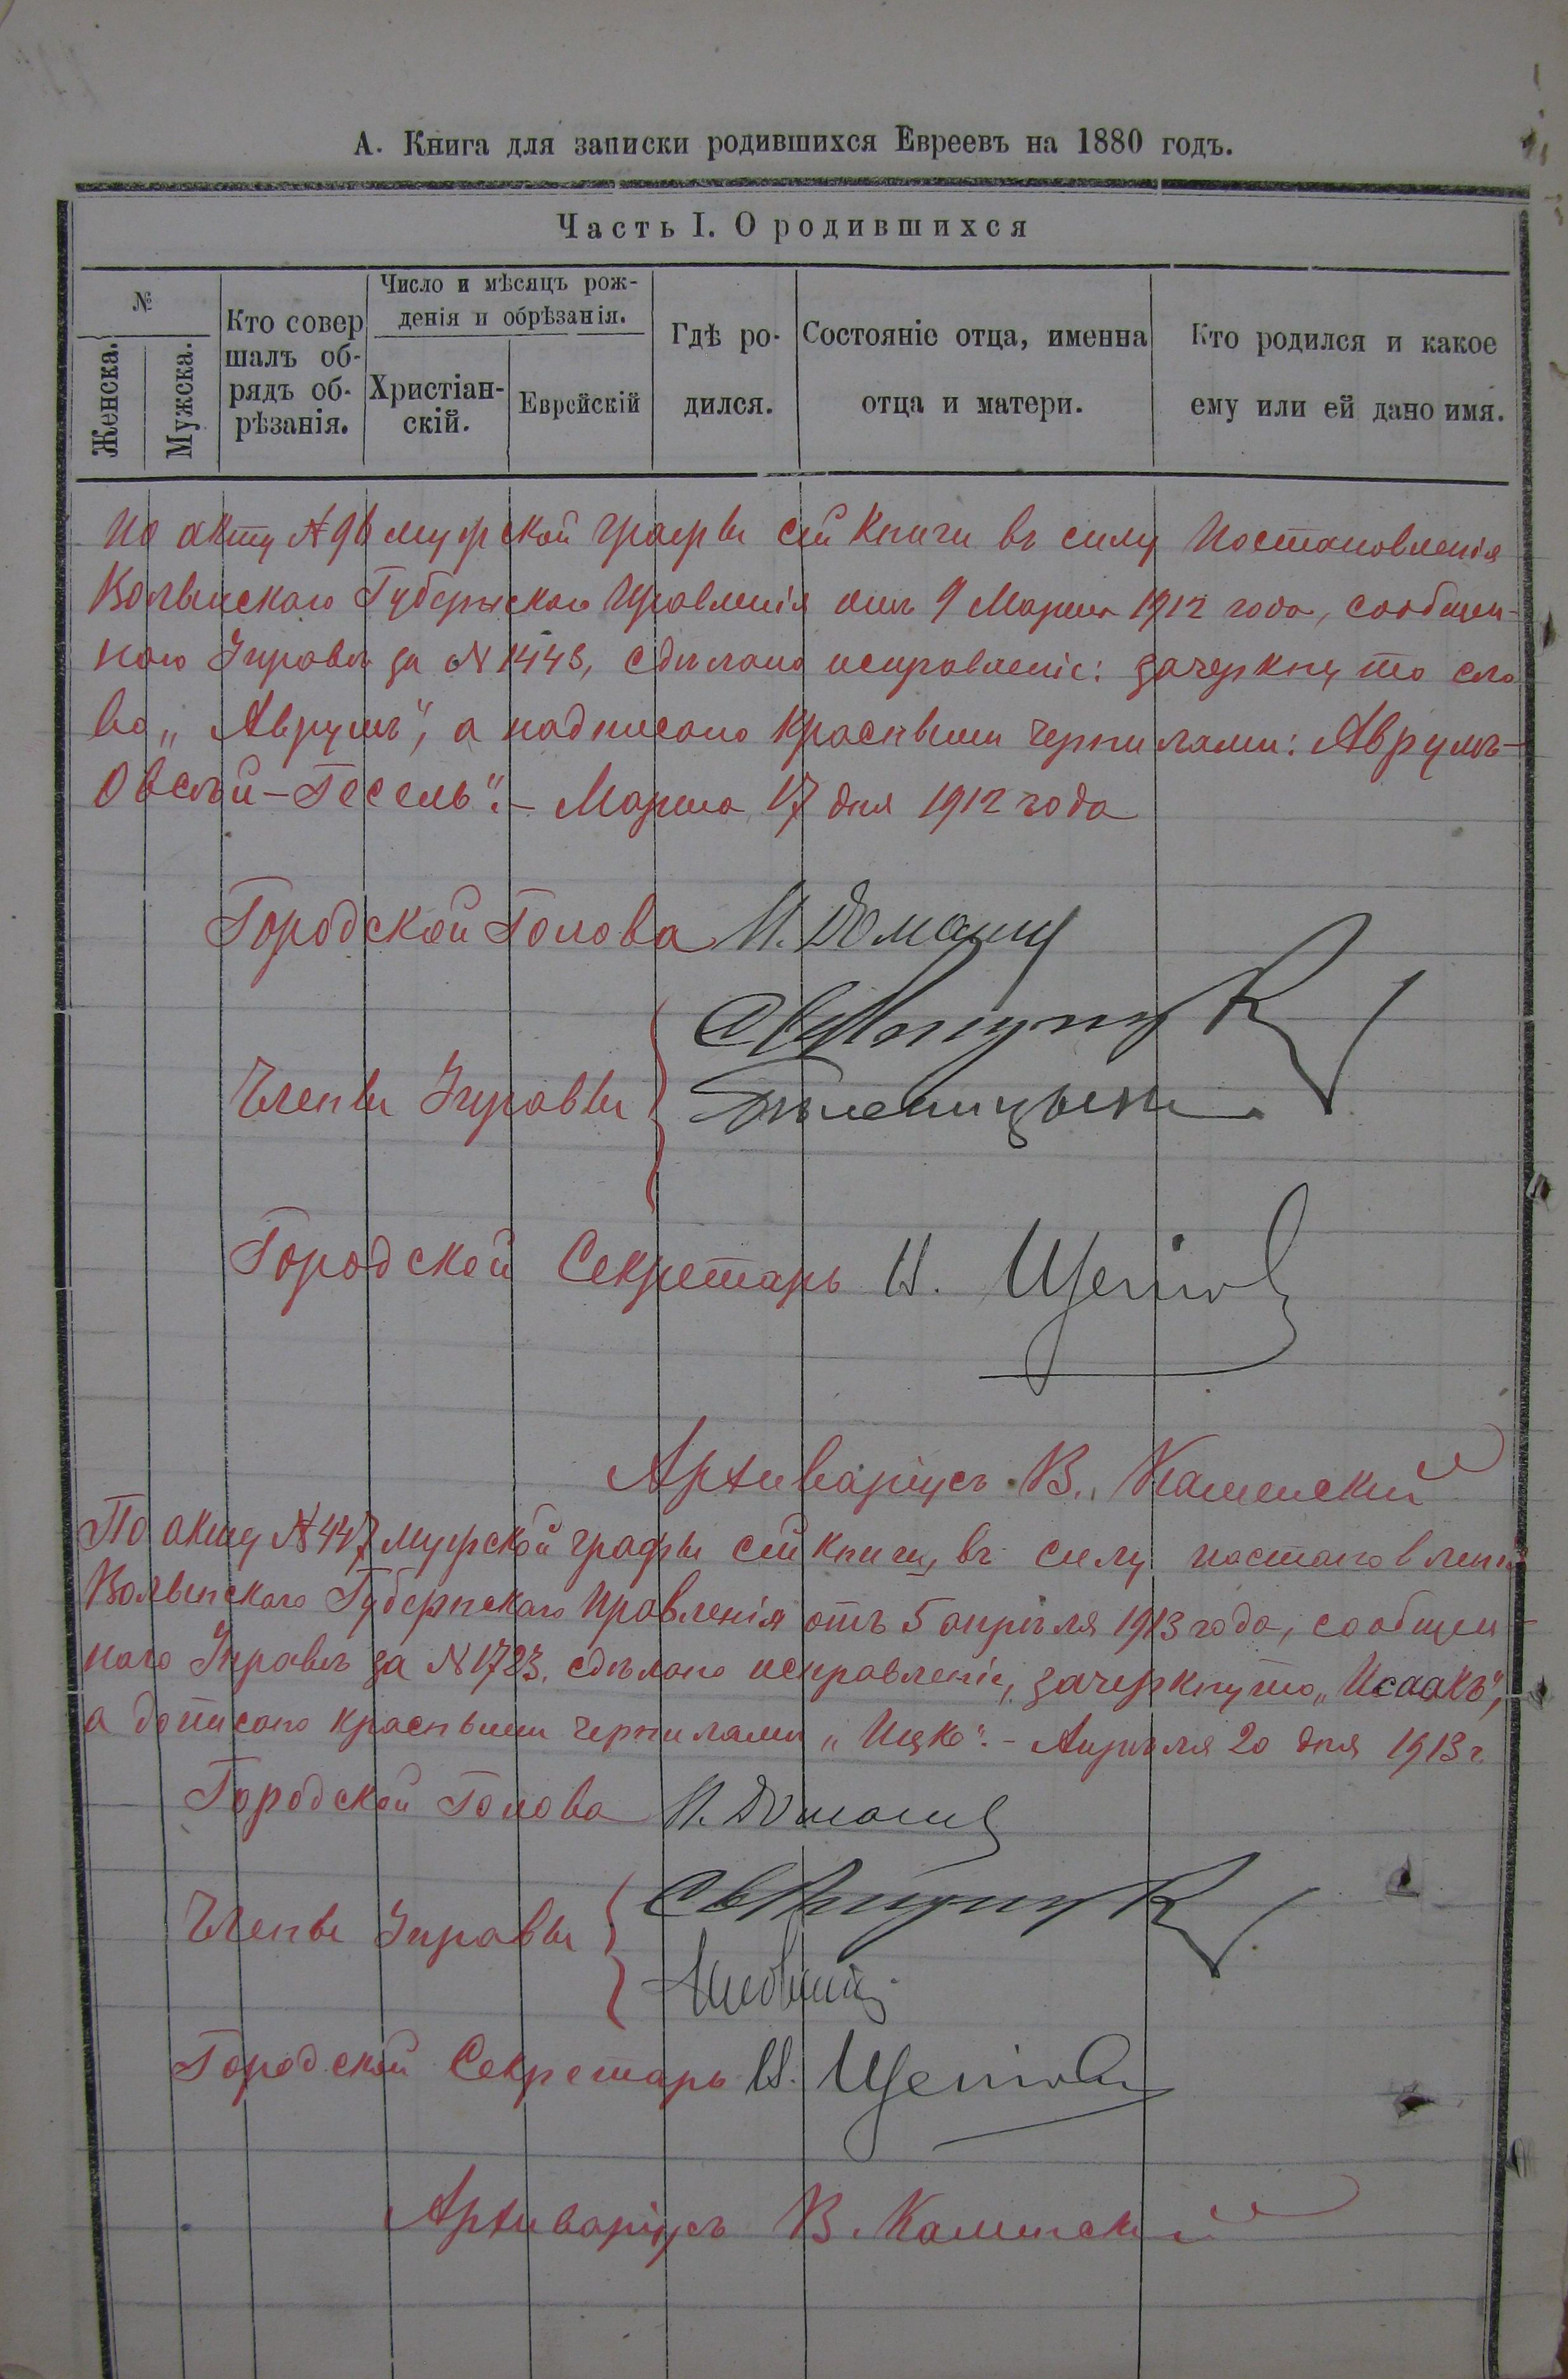 А. Книга для записки родившихся Евреевъ на 1880 годъ.
Часть I. О родившихся
№
Женска.
Мужска.
Кто совер
шалъ об-
рядъ об-
рѣзанія.
Число и мѣсяцъ рож-
денія и обрѣзанія.
Христіан-
скій.
Еврейскій
Гдѣ ро-
дился.
Состояніе отца, именна
отца и матери.
Кто родился и какое
ему или ей дано имя.
По акту № 96 мужской графы сей книги въ силу Постановленія
Волынскаго Губернскаго Правленія отъ 9 Марта 1912 года, сообщен-
наго Управѣ за № 1443, сдѣлано исправленіе: зачеркнуто сло
во „Аврумъ“, а надписано красными чернилами: Аврумъ-
Овсѣй-Гесель“. – Марта 17 дня 1912 года
Городской Голова И. Домаш
Члены Управы
Городской Секретарь Н.
Архиваріусъ В. Каменскій
По акту № 447 мужской графы сей книги, въ силу постановленія
Волынскаго Губернскаго Правленія отъ 5 апрѣля 1913 года, сообщен-
наго Управѣ за № 1723, сдѣлано исправленіе, зачеркнуто „Исаакъ“,
а дописано красными чернилами „Ицко“. – Апрѣля 20 дня 1913 г.
Городской Голова И. Домаш
Члены Управы
Городской Секретарь Н.
Архиваріусъ В. Каменскій